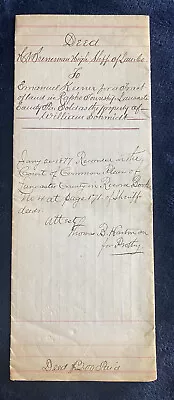 Deed
High Shff of Lanc.
To
Emanuel Keener for a Tract
of land in Rapho Township Lancaster
County Pa. Sold as the property of
William
1877 Recorded in the
Court of Common Pleas of
Lancaster County in Record Book
at page 171 of Sheriff
deeds
Attest
Thomas B.
for Prothy